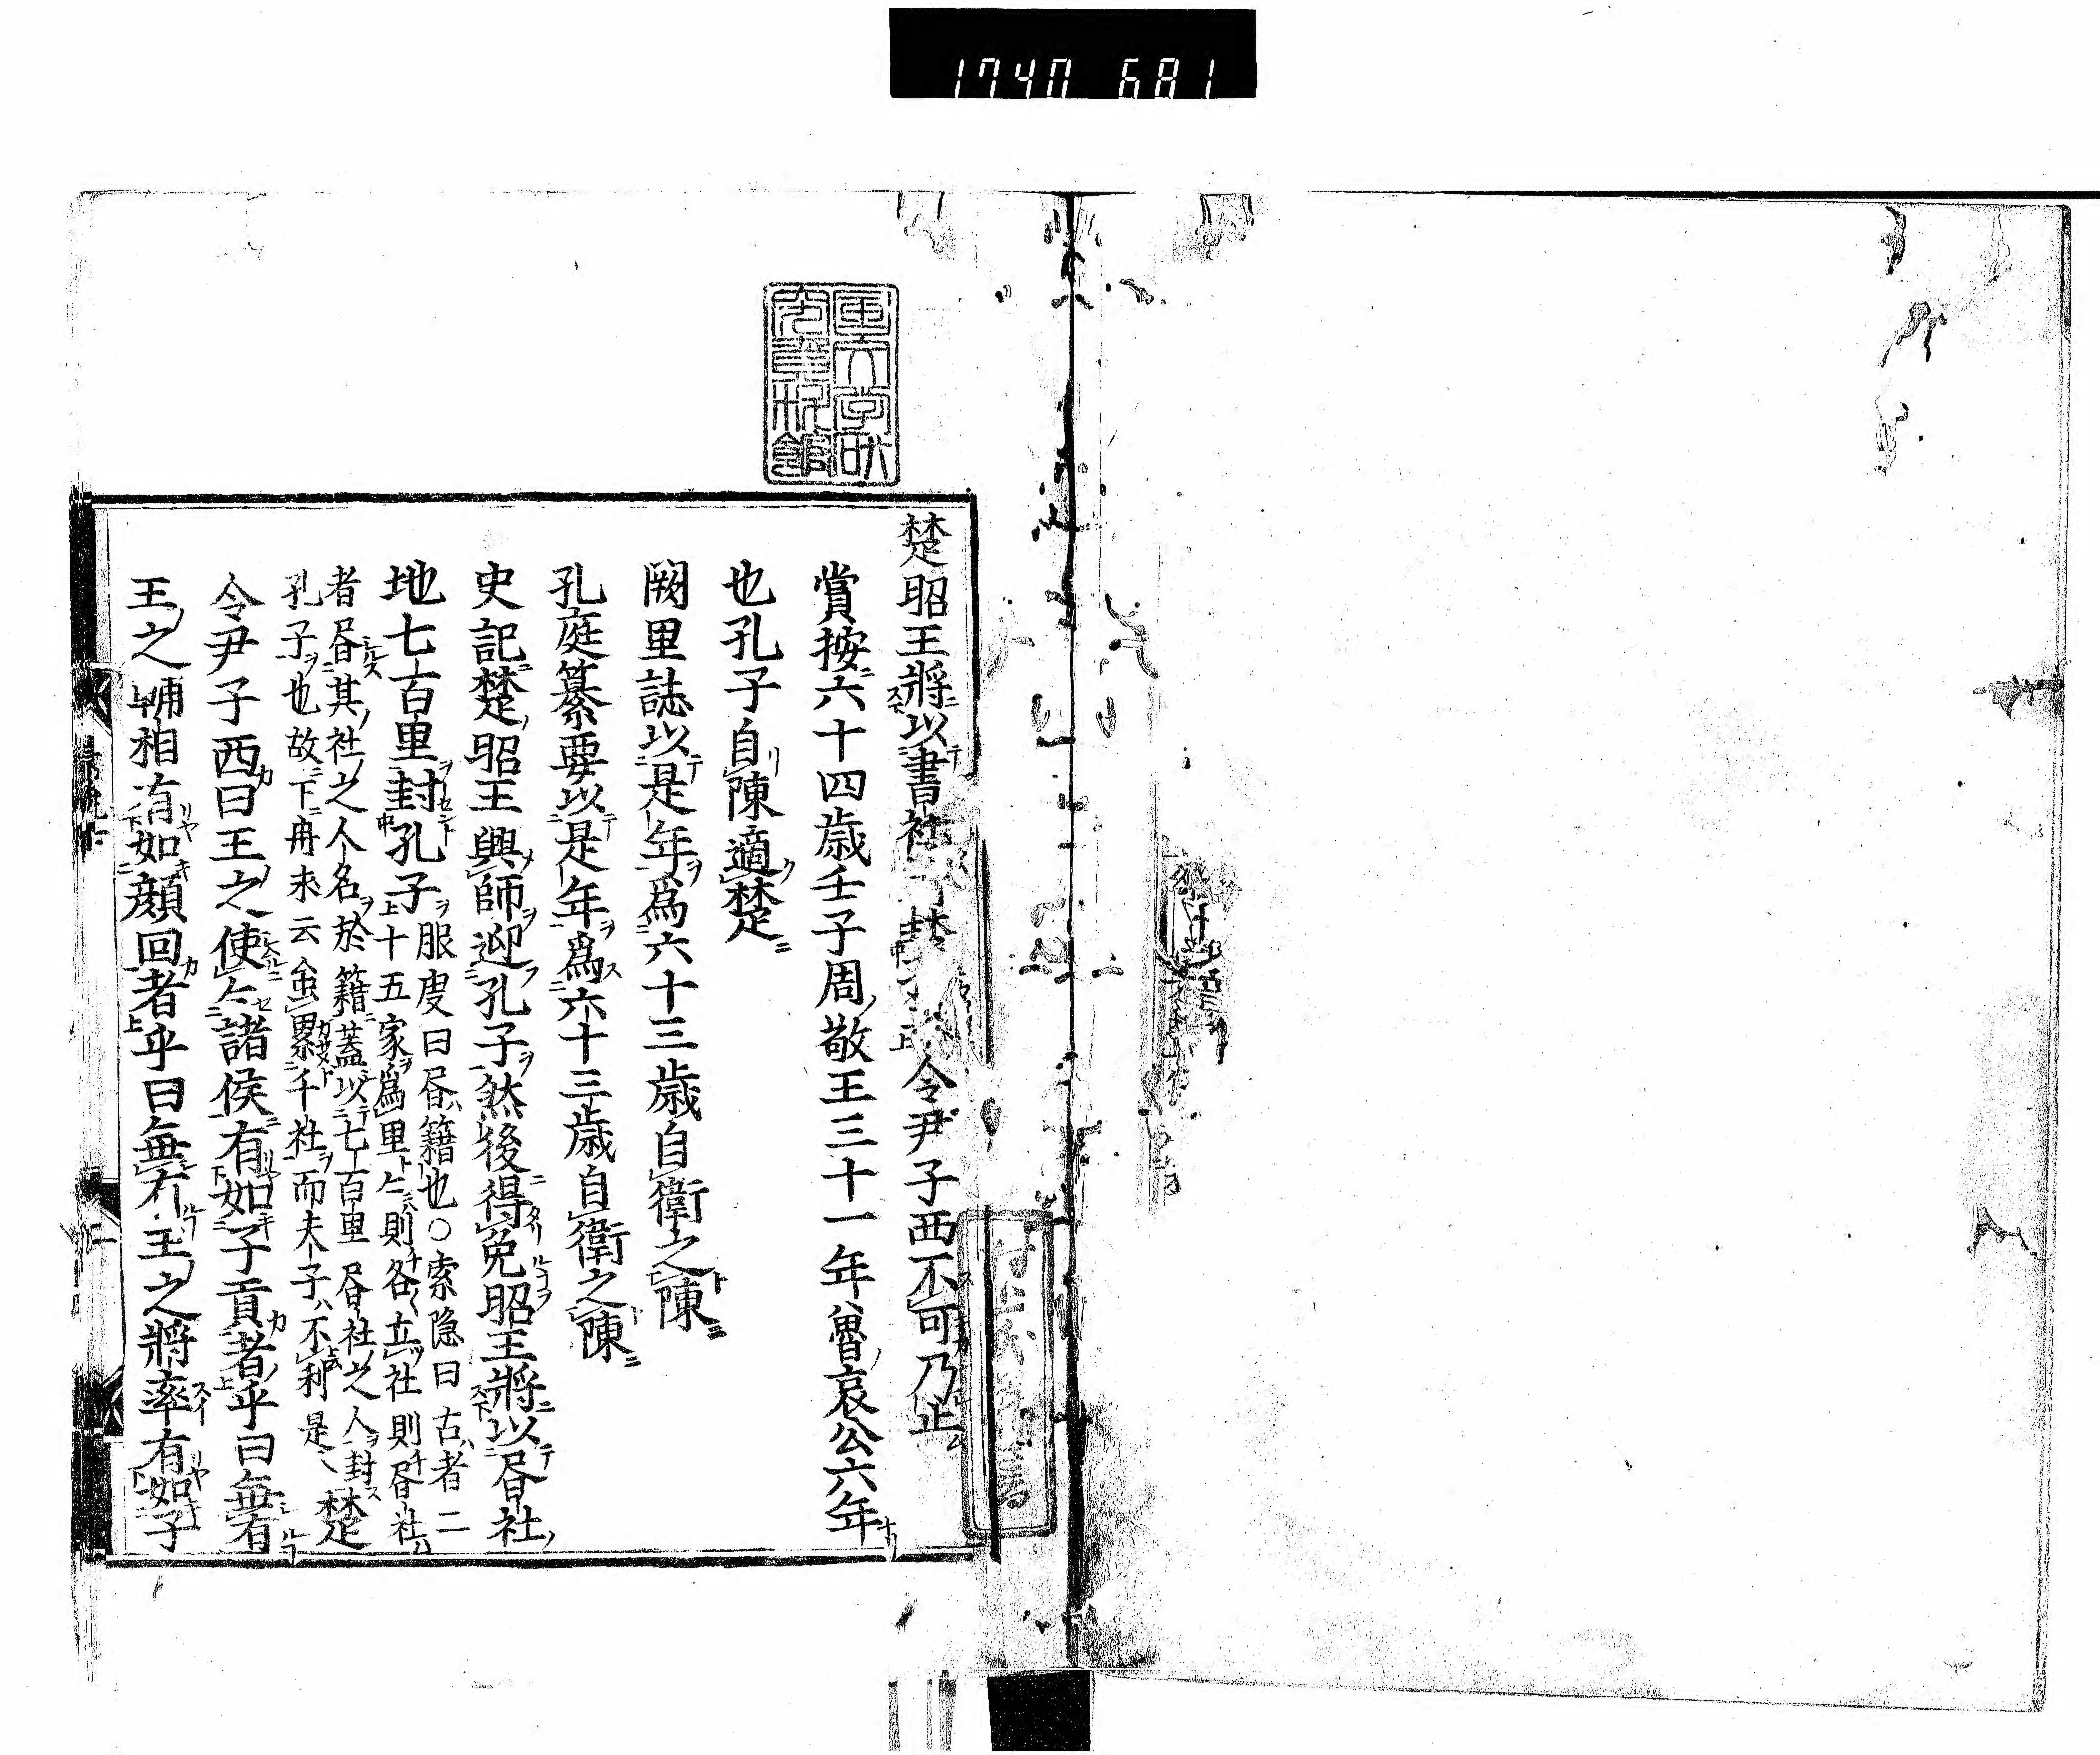 1740 681
國文學研
究資料館
楚昭王將以書社 封 令尹子西不可乃止
賞按六十四歲壬子周敬王三十一年魯哀公六年
也孔子自陳適楚
闕里誌以是年爲六十三歲自衛之陳
孔庭纂要以是年爲六十三歲自衛之陳
史記楚昭王興師迎孔子然後得免昭王將以昬社
地七百里封孔子
服虔曰昬籍也○索隱曰古者二
十五家爲里々則各立社則昬社
者昬其社之人名於籍蓋以七百里昬社之人封
孔子也故下冉求云虽累千社而夫子不利是 楚
令尹子西曰王之使々諸侯有如子貢者乎曰無有
王之輔相有如顔回者乎曰無有王之將率有如子